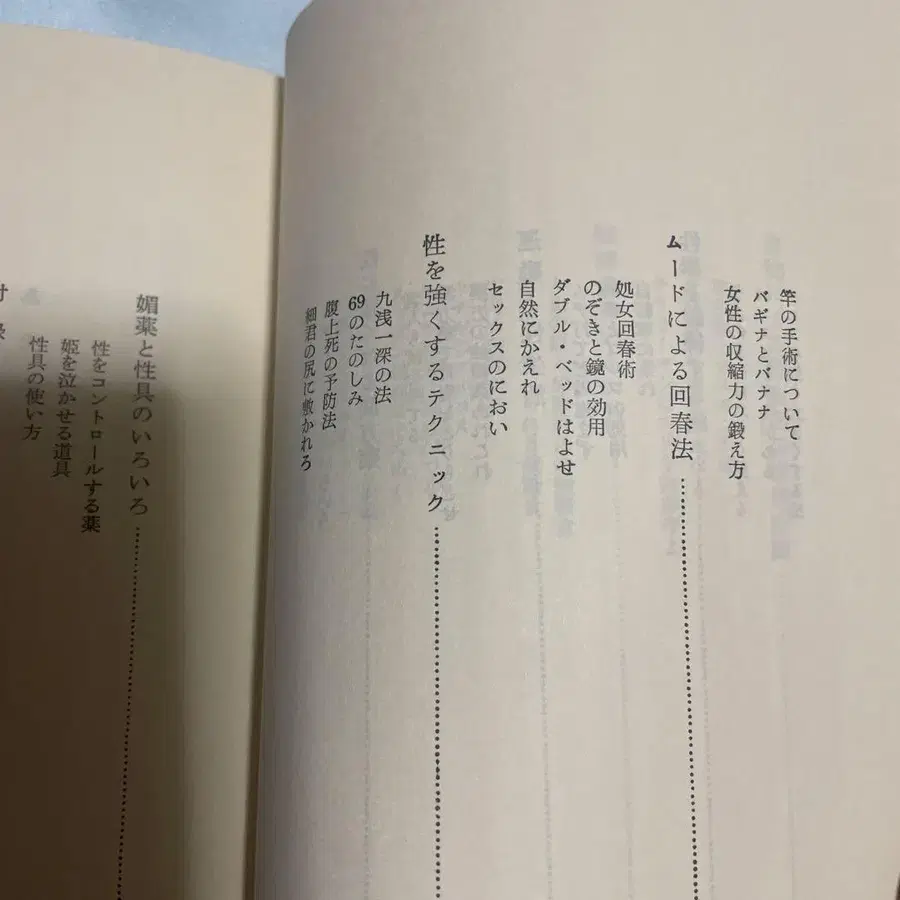 竿の手術について
バギナとバナナ
女性の収縮力の鍛え方
ムードによる回春法
処女回春術
のぞきと鏡の効用
ダブル・ベッドはよせ
自然にかえれ
セックスのにおい
性を強くするテクニック
九浅一深の法
69のたのしみ
腹上死の予防法
細君の尻に敷かれろ
媚薬と性具のいろいろ
性をコントロールする薬
姫を泣かせる道具
性具の使い方